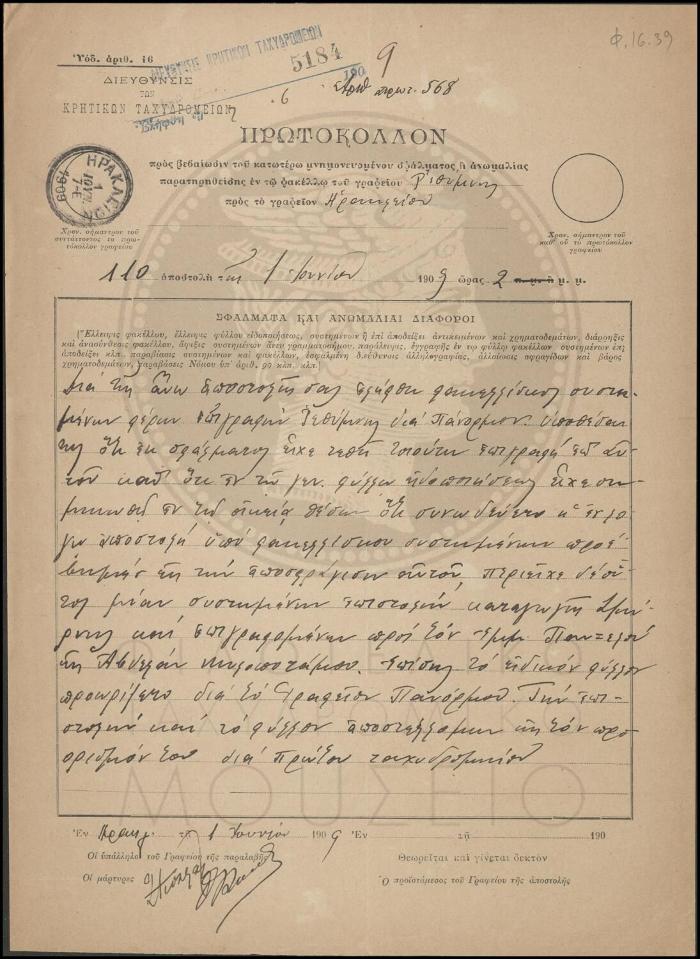 Φ.16.39
Ὑόδ. ἀριθ. 16
ΔΙΕΥΘΥΝΣΙΣ ΚΡΗΤΙΚΩΝ ΤΑΧΥΔΡΟΜΕΙΩΝ
5184
190
9
ΔΙΕΥΘΥΝΣΙΣ
ΤΩΝ
ΚΡΗΤΙΚΩΝ ΤΑΧΥΔΡΟΜΕΙΩΝ
6
Ἀριθ πρωτ. 568
ΠΡΩΤΟΚΟΛΛΟΝ
πρὸς βεβαίωσιν τοῦ κατωτέρω μνημονευομένου σφάλματος ἢ ἀνωμαλίας
παρατηρηθείσης ἐν τῷ φακέλλῳ τοῦ γραφείου Ρεθύμνης
πρὸς τὸ γραφεῖον Ἡρακλείου
ΗΡΑΚΛΕΙΟΝ
1
ΙΟΥΝ.
7-Ε
1909
Χρον. σήμαντρον τοῦ
συντάττοντος τὸ πρω-
τόκολλον γραφείου
Χρον. σήμαντρον τοῦ
καθ' οὗ τὸ πρωτόκολλον
γραφείου
110 ἀποστολὴ τῆς 1 Ἰουνίου 1909 ὥρας 2 π. μ. ἢ μ. μ.
ΣΦΑΛΜΑΤΑ ΚΑΙ ΑΝΩΜΑΛΙΑΙ ΔΙΑΦΟΡΟΙ
(Ἔλλειψις φακέλλου, ἔλλειψις φύλλου εἰδοποιήσεως, συστημένων ἢ ἐπὶ ἀποδείξει ἀντικειμένων καὶ χρηματοδεμάτων, διάρρηξις
καὶ ἀνασύνθεσις φακέλλου, ἄφιξις συστημένων ἄνευ γραμματοσήμου, παράλειψις, ἐγγραφῆς ἐν τῷ φύλλῳ φακέλλων συστημένων ἐπὶ
ἀποδείξει κλπ., παραβίασις συστημένων καὶ φακέλλων, ἐσφαλμένη διεύθυνσις ἀλληλογραφίας, ἀλλοίωσις σφραγίδων καὶ βάρος
χρηματοδεμάτων, παραβίασις Νόμου ὑπ' ἀριθ. 90 κλπ. κλπ.)
Διὰ τῆς ἄνω ἀποστολῆς σας ἐλήφθη φακελλίσκος συστη-
μένων φέρων ἐπιγραφὴν Ρεθύμνης διὰ Πάνορμον. Ὑποθέσαν-
τες ὅτι ἐκ σφάλματος εἶχε τεθῆ τοιαύτη ἐπιγραφὴ ἐπ' αὐ-
τοῦ καθ' ὅτι ἐν τῷ γεν. φύλλῳ εἰδοποιήσεως εἶχε ση-
μειωθῆ ἐν τῇ οἰκείᾳ θέσει ὅτι συνωδεύετο ἡ ἐν λό-
γῳ ἀποστολὴ ὑπὸ φακελλίσκου συστημένων προέ-
βημεν εἰς τὴν ἀποσφράγισιν αὐτοῦ, περιεῖχε δὲ οὗ-
τος μίαν συστημένην ἐπιστολὴν καταγωγῆς Σμύρ-
νης καὶ ἐπιγραφομένην πρὸς τὸν
εἰς Μυλοποτάμου. Ἐπίσης τὸ εἰδικὸν φύλλον
προωρίζετο διὰ τὸ Γραφεῖον Πανόρμου. Τὴν ἐπι-
στολὴν καὶ τὸ φύλλον ἀποστέλλομεν εἰς τὸν προ-
ορισμόν του διὰ πρώτου ταχυδρομείου
Ἐν Ἡρακλ. τῇ 1 Ἰουνίου 1909 Ἐν τῇ 190
Οἱ ὑπάλληλοι τοῦ Γραφείου τῆς παραλαβῆς
Θεωρεῖται καὶ γίνεται δεκτὸν
Οἱ μάρτυρες
Ὁ προϊστάμενος τοῦ Γραφείου τῆς ἀποστολῆς
ΜΟΥΣΕΙΟ